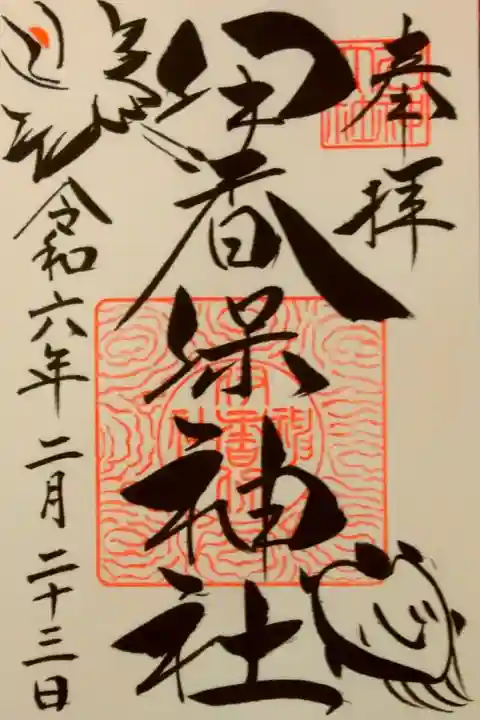 奉拝
伊香保神社
令和六年 二月 二十三日